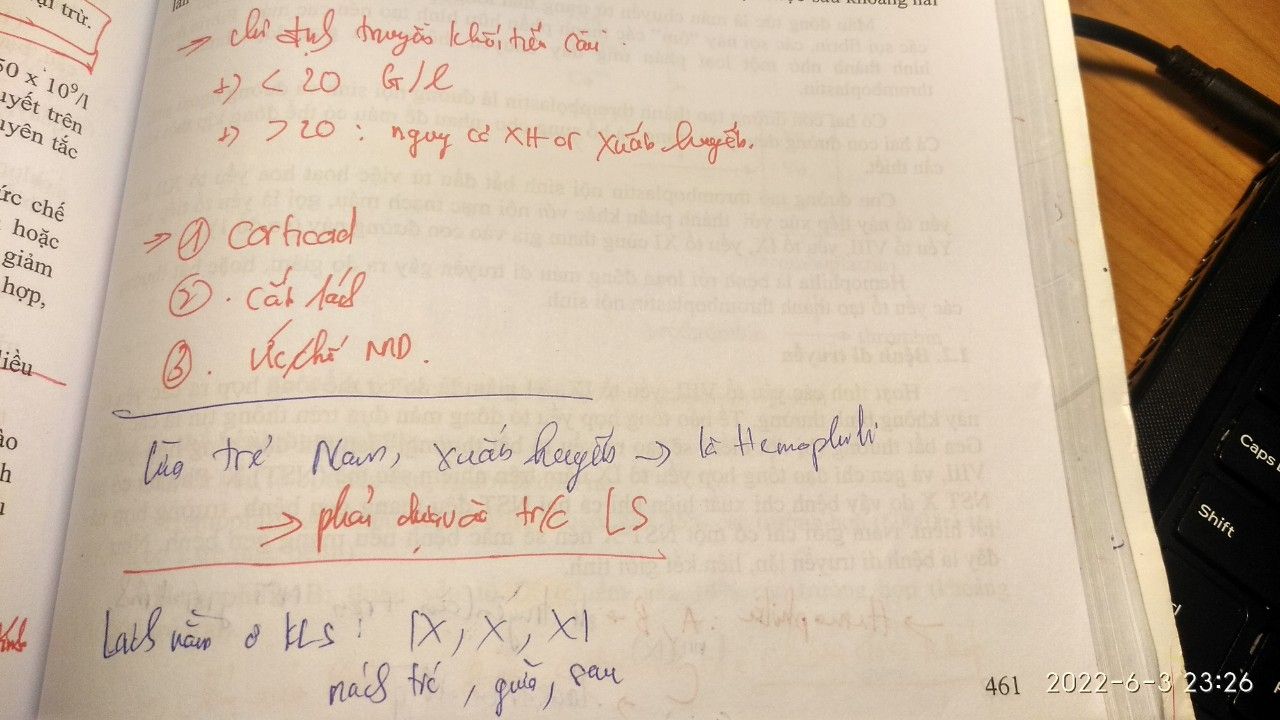 ại trừ.
50 x 10⁹/l
uyết trên
uyên tắc
ức chế
hoặc
giảm
hợp,
liều
ào
h
→ chỉ định truyền khối tiểu cầu.
+) < 20 G/l
+) > 20 : nguy cơ XH or xuất huyết.
→ ① corticoid
② . cắt lách
③ . Ức chế MD.
trẻ Nam, xuất huyết → là Hemophili
→ phải dựa vào tr/c LS
Lách nằm ở KLS : IX, X, XI
nách trc, giữa, sau
461
2022-6-3 23:26
Caps
Shift